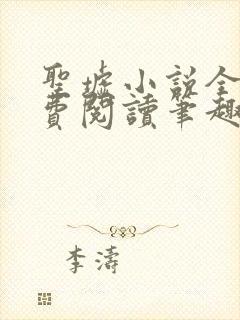 聖墟小說全
費閱讀筆趣
李濤